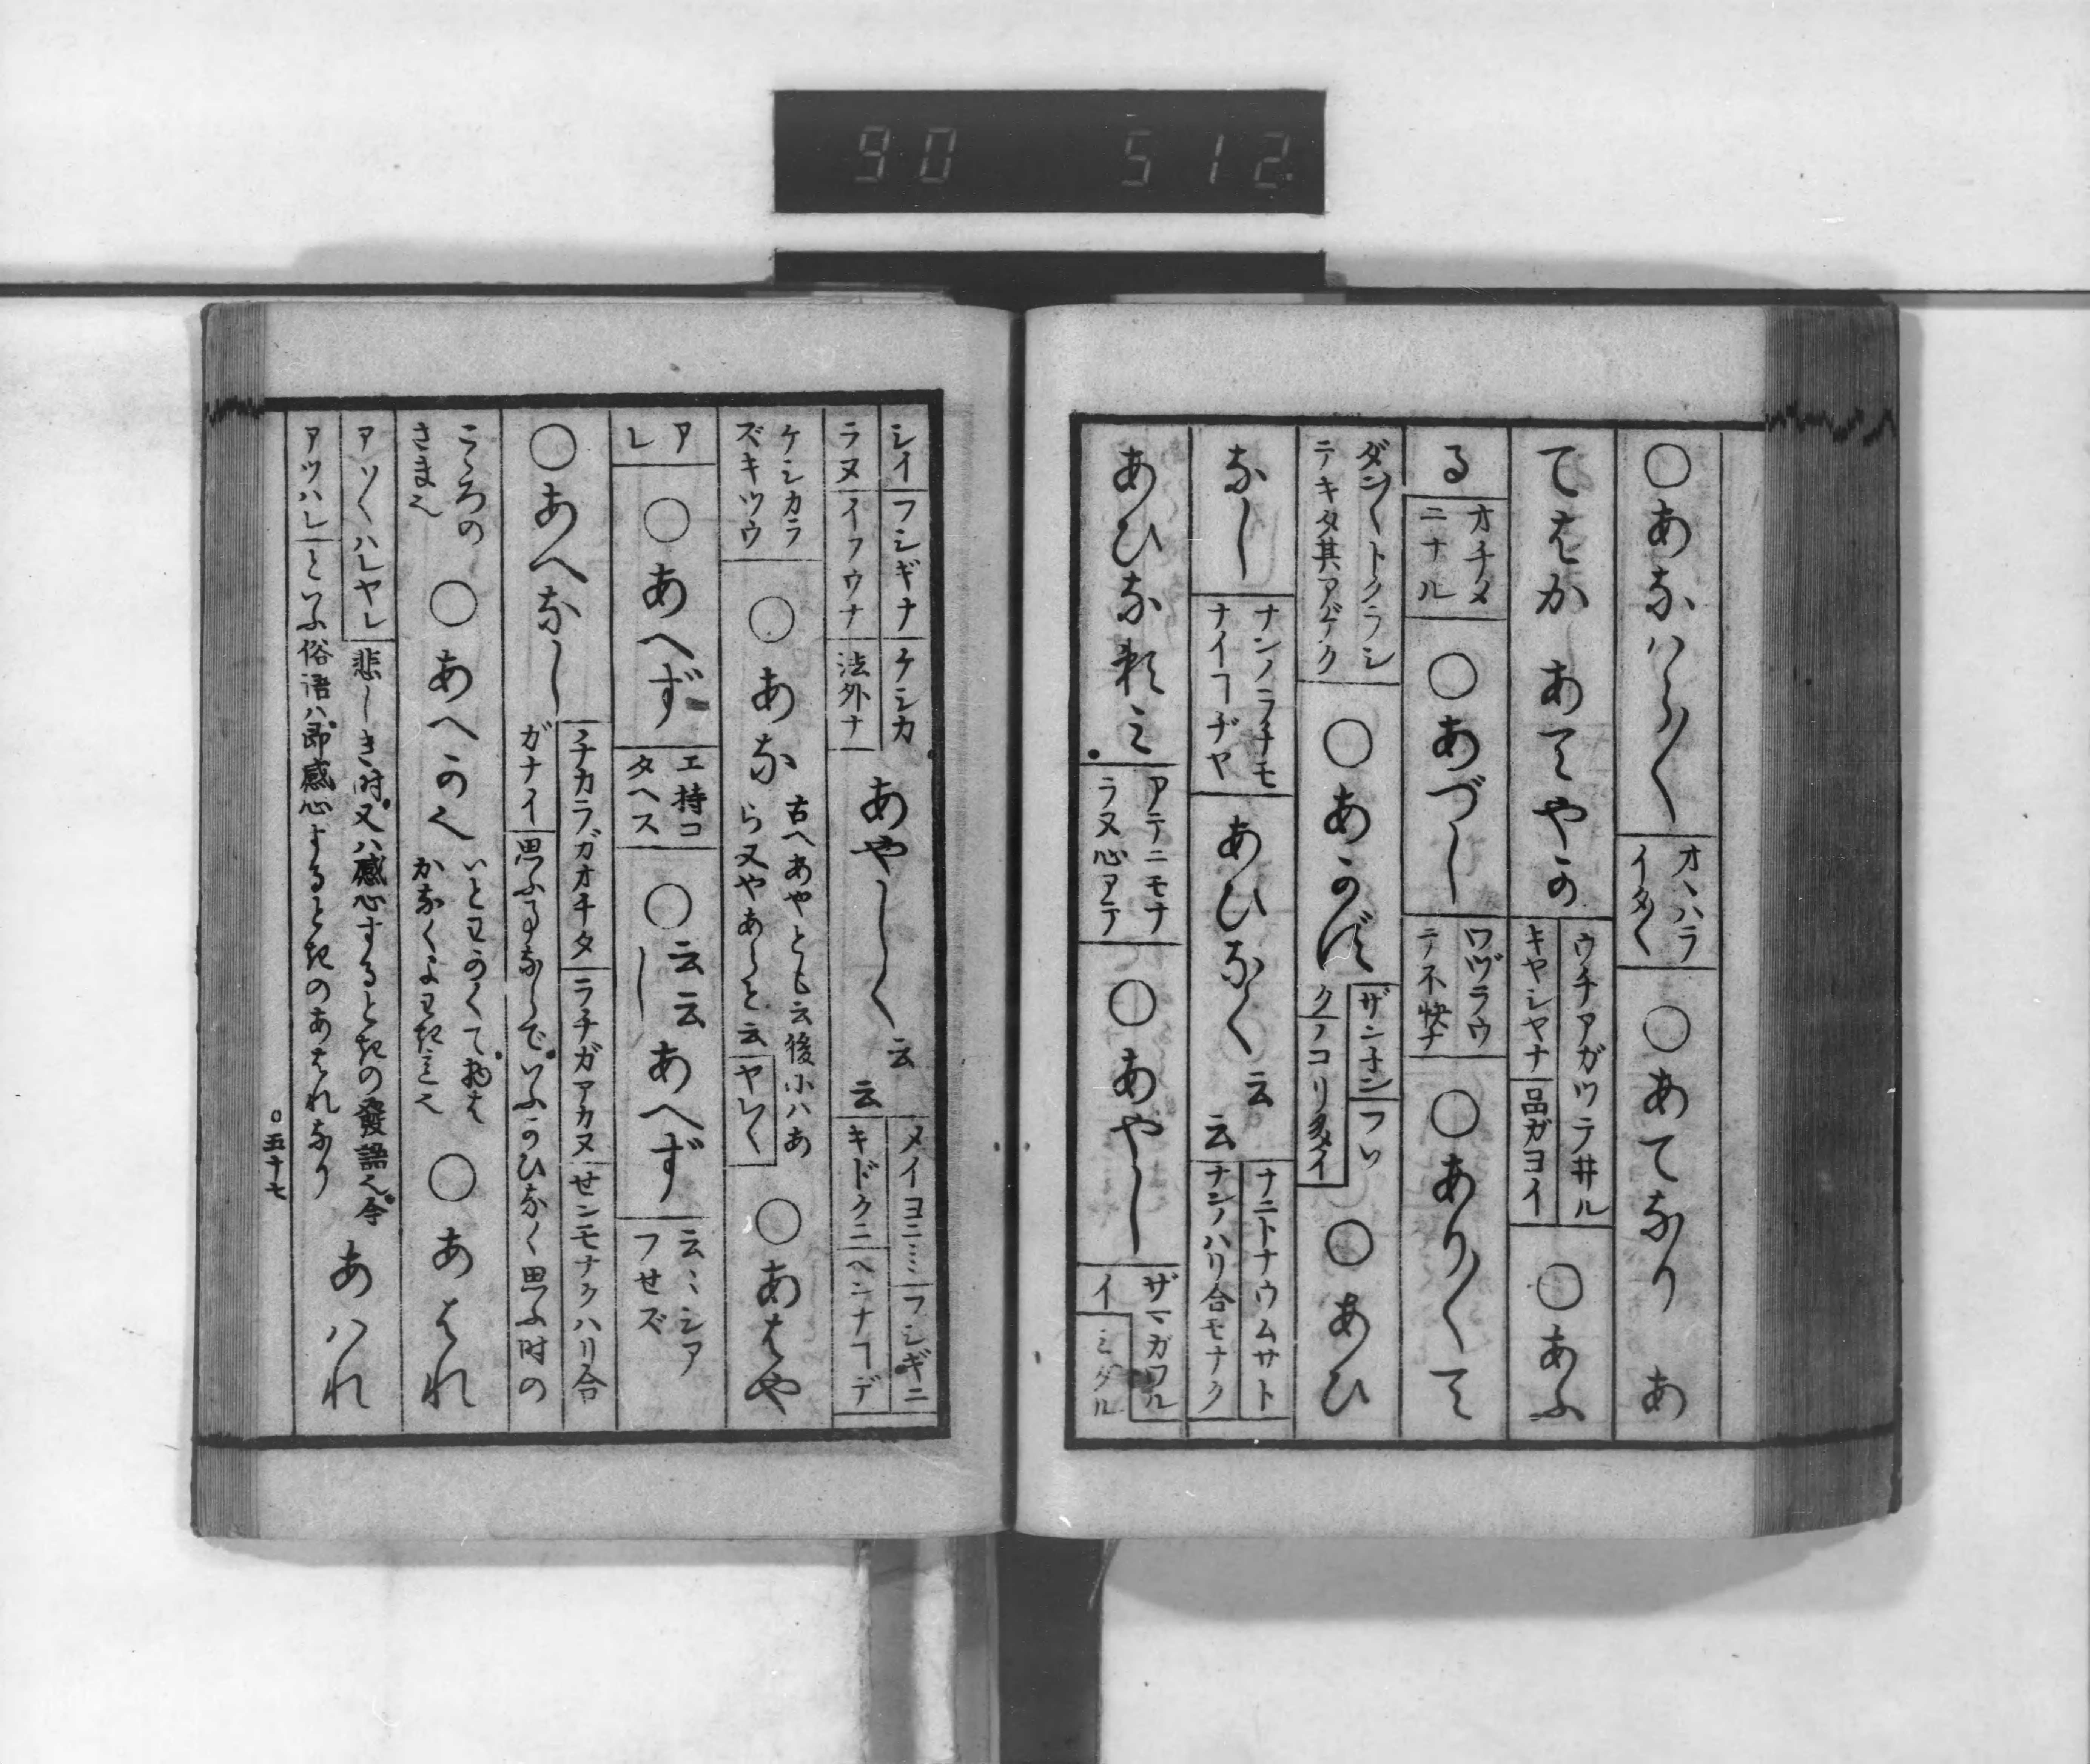 90 512
○あなはら〳〵 オヽハラ
イタ〳〵 ○あてなり あ
てはか あてやか ウチアガツテ井ル
キヤシヤナ 品ガヨイ ○あふ
る オチメ
ニナル ○あづし ワヅラウ
テ不快ナ ○あり〳〵て
ダン〳〵トクラシ
テキタ其アゲク ○あかず ザンネン フソ
ク ノコリ多イ ○あひ
なし ナンノラチモ
ナイヿヂヤ あひなく 云
云 ナニトナウムサト
ナンノハリ合モナク
あひな頼み アテニモナ
ラヌ心アテ ○あやし ザマガワル
イ ミグル
シイ フシギナ ケシカ
ラヌ イフウナ 法外ナ あやしく 云
云 メイヨニミ フシギニ
キドクニ ヘンナヿデ
ケシカラ
ズキツウ ○あな 古へあやとも云後にハあ
ら又やあらと云 ヤレ〳〵 ○あはや
ア
レ ○あへず エ持コ
タヘス ○云云
し あへず 云ミシア
フせズ
○あへなし チカラガオチタ ラチガアカヌ せンモナク ハリ合
ガナイ 思ふ事ならで いふかひなく思ふ時の
こゝろの
さま也 ○あへかヘ いとわかくて物は
かなくよわきを云 ○あはれ
アソ〳〵ハレヤレ 悲しき時又ハ感心するときの發語也今
アツハレ といふ俗語ハ即感心するときのあはれなり あハれ
○五十七